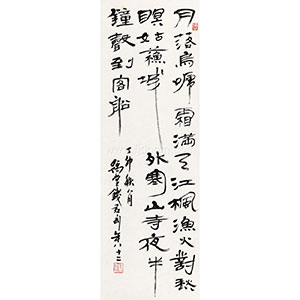 月落烏啼霜滿天江楓漁火對愁
瞑姑蘇城外寒山寺夜半
鐘聲到客船
丁卯秋八月
豫堂錢君匋年八十二